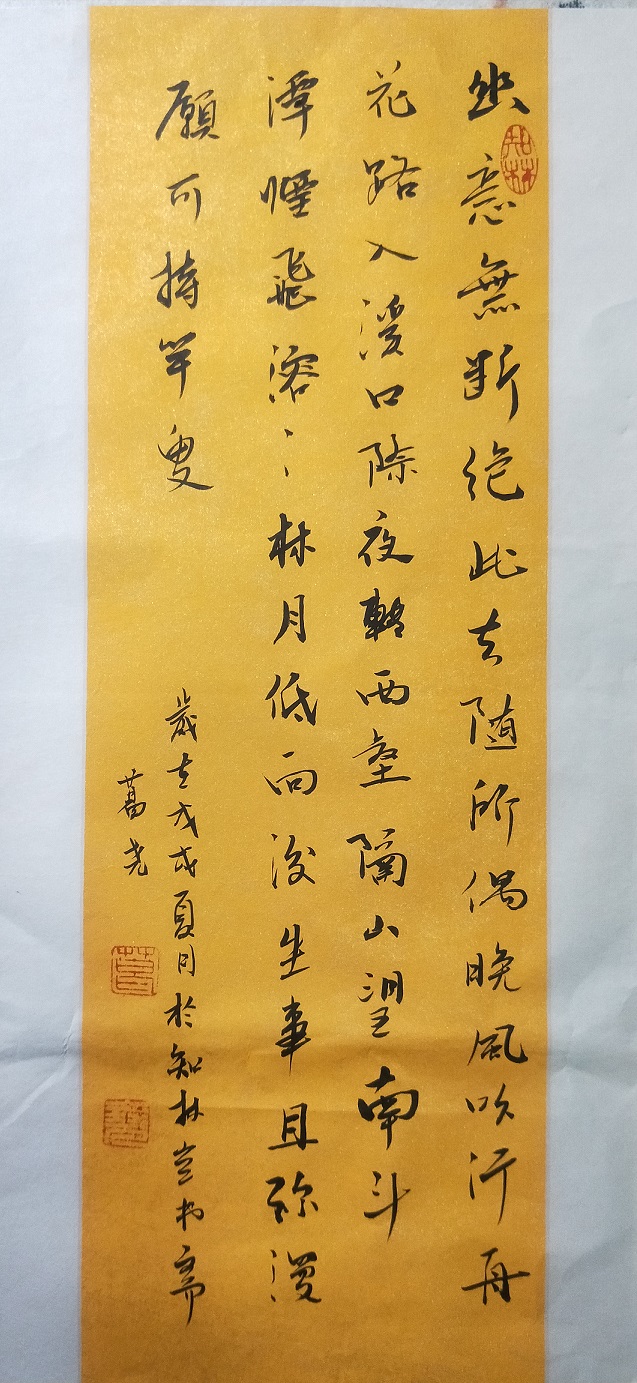 幽意無断绝此去随所偶晚風吹行舟
花路入溪口际夜轉西壑隔山望南斗
潭煙飛溶溶林月低向後生事且弥漫
願可持竿叟
歲在戊戌夏月於知林堂书斋
葛尧
知林